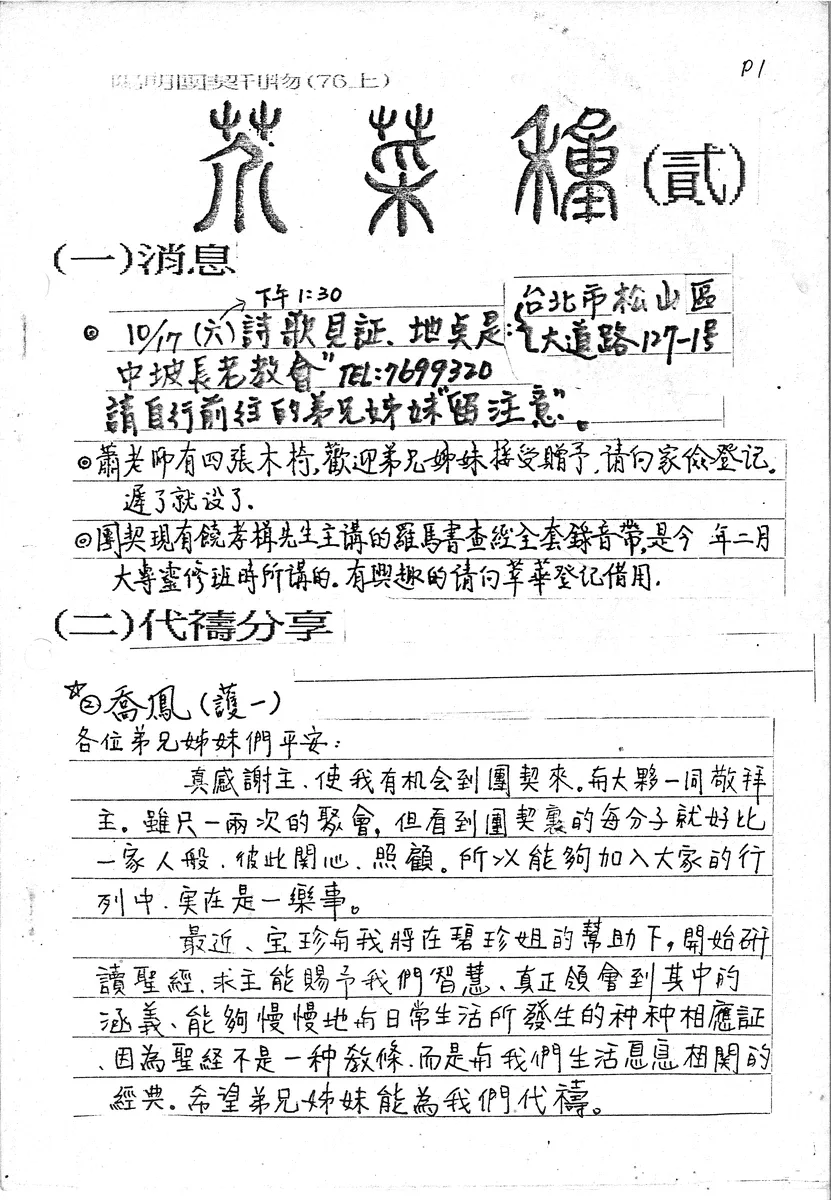 P1
陽明團契刊物(76上)
芥菜種(貳)
(一)消息
下午1:30
◎ 10/17(六)詩歌見証、地点是:台北市松山區
大道路127-1号
中坡長老教會" TEL:7699320
請自行前往的弟兄姊妹"留注意"。
◎蕭老师有四張木椅,歡迎弟兄姊妹接受贈予,请向家儉登记。
遲了就没了.
◎團契現有饒孝楫先生主講的羅馬書查經全套錄音帶,是今 年二月
大專靈修班時所講的.有興趣的请向草華登记借用.
(二)代禱分享
☆②喬鳳(護一)
各位弟兄姊妹們平安:
真感謝主、使我有机会到團契來。与大夥一同敬拜
主。雖只一兩次的聚會,但看到團契裏的每分子就好比
一家人般、彼此関心、照顧。所以能夠加入大家的行
列中、実在是一樂事。
最近、宝珍与我將在碧珍姐的幫助下,開始研
讀聖經、求主能賜予我們智慧、真正領會到其中的
涵義、能夠慢慢地与日常生活所發生的种种相應証
、因為聖経不是一种教條、而是与我們生活息息相関的
經典。希望弟兄姊妹能為我們代禱。